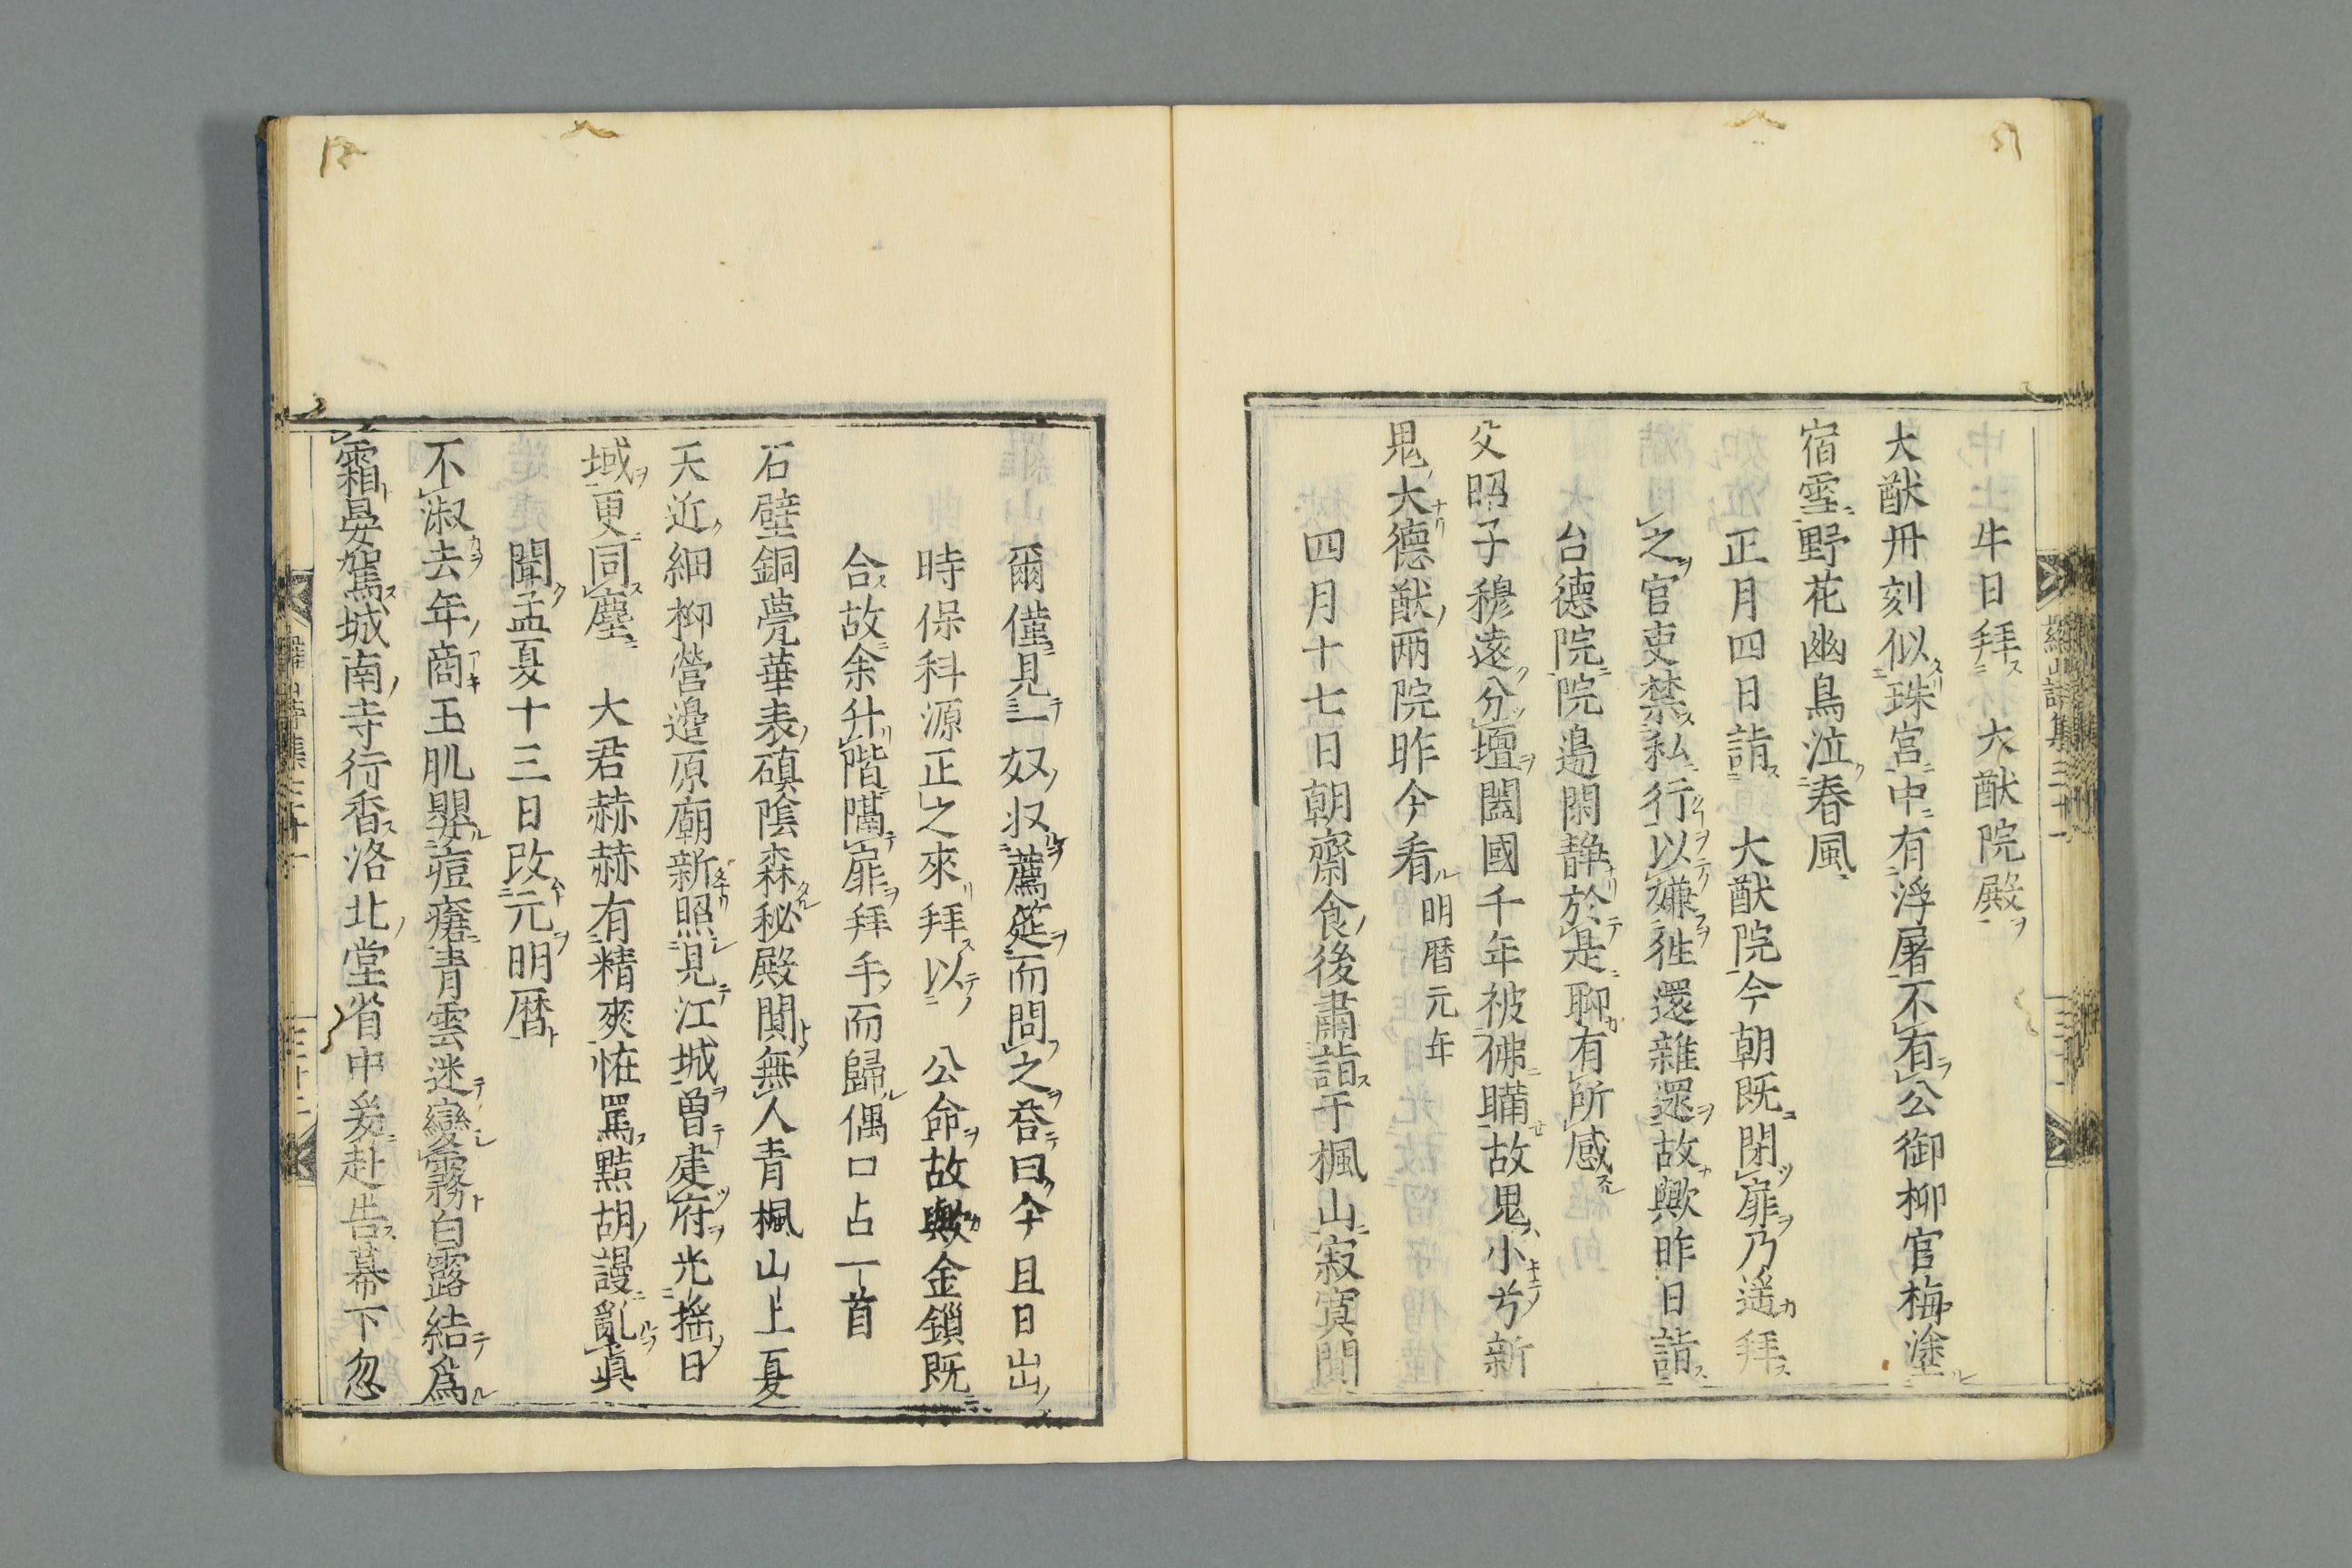 牛日拜 大猷院殿
大猷丹刻似珠宮中有浮屠不有公御柳官梅塗
宿雪野花幽鳥泣春風
正月四日詣 大猷院今朝既閉扉乃遥拜
之官吏禁私行以嫌徃還雜還故歟昨日詣
台德院院邉閑静於是聊有所感
父昭子穆遠分壇闔國千年被佛瞞故鬼小兮新
鬼大德猷兩院昨今看 明暦元年
四月十七日朝齋食後肅詣于楓山寂寞閴
爾僅見一奴収薦筵而問之荅曰今且日出
時保科源正之來拜以 公命故歟金鎖既
合故余升階隔扉拜手而歸偶口占一首
石壁銅甍華表磌陰森秘殿閴無人青楓山上夏
天近細柳營邉原廟新照見江城曽建府光揺日
域更同塵 大君赫赫有精爽恠罵黠胡謾亂眞
聞孟夏十三日改元明暦
不淑去年商玉肌嬰痘瘡青雲迷變霧白露結爲
霜晏駕城南寺行香洛北堂省中爰赴告幕下忽
羅山詩集三十一
三十一
三十二